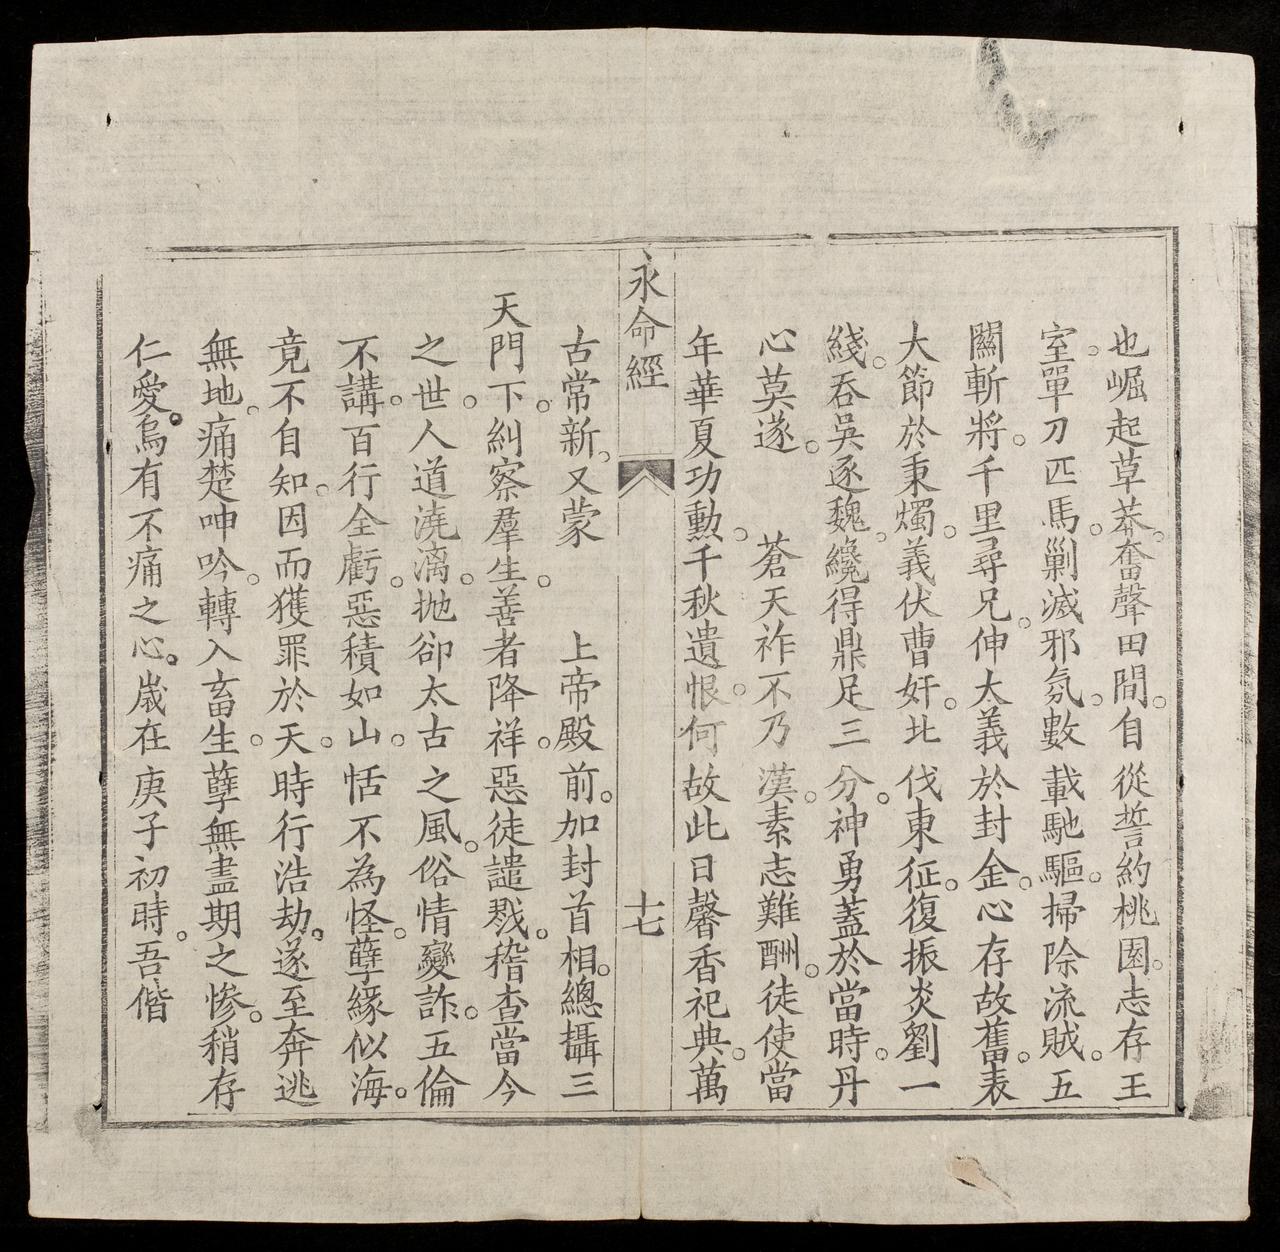 也崛起草莽。奮聲田間。自從誓約桃園。志存王
室。單刀匹馬。剿滅邪氛。數載馳驅。掃除流賊。五
關斬將。千里尋兄。伸大義於封金。心存故舊。表
大節於秉燭。義伏曹奸。北伐東征。復振炎劉一
綫。吞吳逐魏。纔得鼎足三分。神勇蓋於當時。丹
心莫遂。蒼天祚不乃漢。素志難酬。徒使當
年華夏功勳。千秋遺恨。何故此日馨香祀典。萬
永命經
十七
古常新。又蒙上帝殿前。加封首相。總攝三
天門下。糾察羣生。善者降祥。惡徒譴戮。稽查當今
之世。人道澆漓。拋卻太古之風。俗情變詐。五倫
不講。百行全虧。惡積如山。恬不為怪。孽緣似海。
竟不自知。因而獲罪於天。時行浩劫。遂至奔逃
無地。痛楚呻吟。轉入畜生。孽無盡期之慘。稍存
仁愛。烏有不痛之心。歲在庚子初時。吾偕